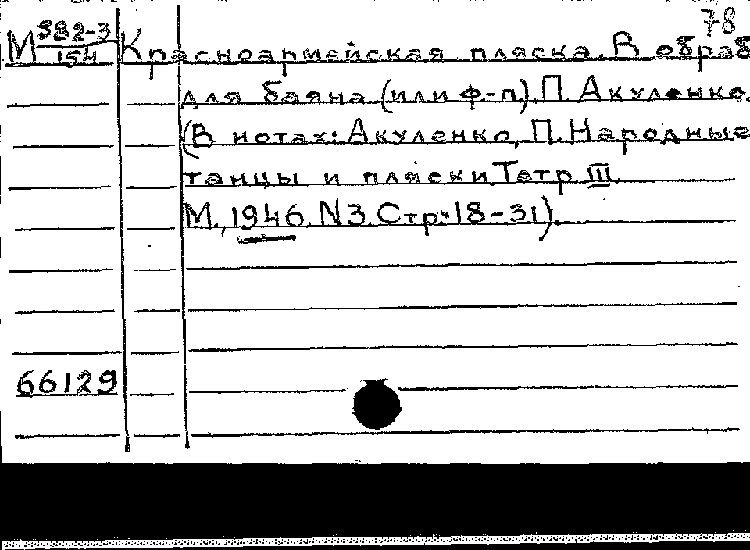 78
М 382-3/154 Красноармейская пляска. В обраб
для баяна (или ф.-п). П. Акуленко.
(В нотах: Акуленко, П. Народные
танцы и пляски. Тетр. III.
М., 1946. N3. Стр. 18-31).
66129